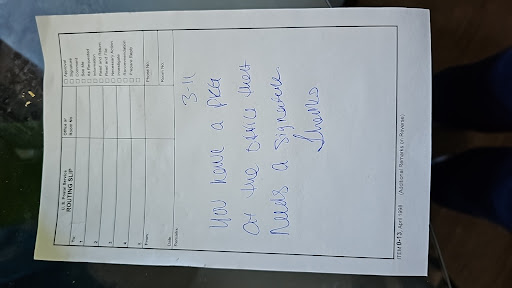 U.S. Postal Service
ROUTING SLIP
To:
Office or
Room No.
1
2
3
4
5
From:
Date
Remarks:
Approval
Signature
Comment
See Me
As Requested
Information
Read and Return
Read and File
Necessary Action
Investigate
Recommendation
Prepare Reply
Phone No.
Room No.
3-11
You have a pkg
at the office that
needs a signature.
Thanks
ITEM 0-13, April 1998 (Additional Remarks on Reverse)